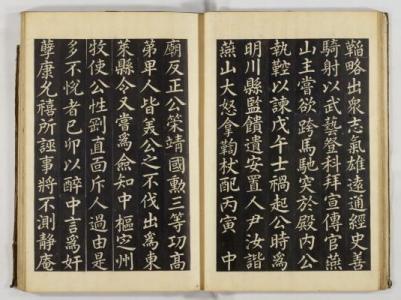 韜略出衆志氣雄遠通經史善
騎射以武藝登科拜宣傳官燕
山主嘗欲跨馬馳突於殿内公
執鞚以諫戊午士禍起公時爲
明川縣監饋遺安置人尹汝諧
燕山大怒拿鞫杖配丙寅 中
廟反正公策靖國勳三等功高
弟卑人皆義公之不伐出爲東
萊縣令又嘗爲僉知中樞定州
牧使公性剛直面斥人過由是
多不悅者己卯以醉中言爲奸
孽康允禧所誣事將不測静庵